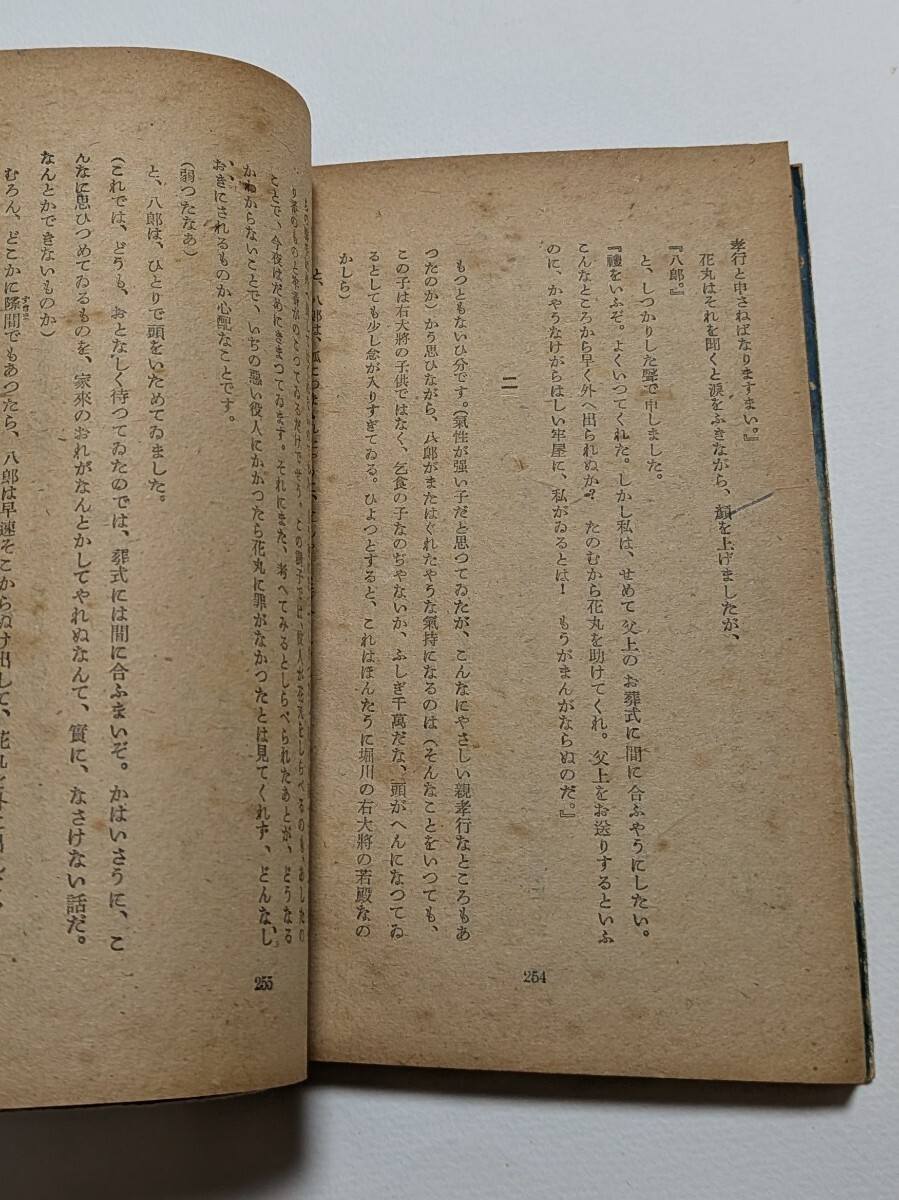 孝行と申さねばなりますまい。』
花丸はそれを聞くと涙をふきながら、顔を上げましたが、
『八郎。』
と、しつかりした聲で申しました。
『禮をいふぞ。よくいつてくれた。しかし私は、せめて父上のお葬式に間に合ふやうにしたい。
こんなところから早く外へ出られぬか？　たのむから花丸を助けてくれ。父上をお送りするといふ
のに、かやうなけがらはしい牢屋に、私がゐるとは！　もうがまんがならぬのだ。』
二
もつともないひ分です。（氣性が强い子だと思つてゐたが、こんなにやさしい親孝行なところもあ
つたのか）かう思ひながら、八郎がまたはぐれたやうな氣持になるのは（そんなことをいつても、
この子は右大將の子供ではなく、乞食の子なのぢやないか、ふしぎ千萬だな、頭がへんになつてゐ
るとしても少し念が入りすぎてゐる。ひよつとすると、これはほんたうに堀川の右大將の若殿なの
かしら）
と、八郎は、
254
この調子では、役人が花丸をしらべるのも、あしたの
ことで、今夜はだめにきまつてゐます。それにまた、考へてみるとしらべられたあとが、どうなる
かわからないことで、いちの悪い役人にかかつたら花丸に罪がなかつたとは見てくれず、どんなし
おきにされるものか心配なことです。
（弱つたなあ）
と、八郎は、ひとりで頭をいためてゐました。
（これでは、どうも、おとなしく待つてゐたのでは、葬式には間に合ふまいぞ。かはいさうに、こ
んなに思ひつめてゐるものを、家來のおれがなんとかしてやれぬなんて、實に、なさけない話だ。
なんとかできないものか）
むろん、どこかに隙間でもあつたら、八郎は早速そこからぬけ出して、花丸を
255